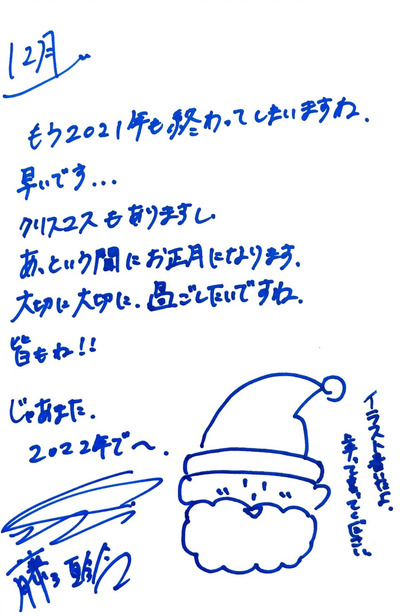 12月
もう2021年も終わってしまいますね.
早いです...
クリスマスもありますし
あっという間にお正月になります.
大切に大切に.過ごしたいですね.
皆もね!!
じゃあまた.
2022年で〜.
イラスト